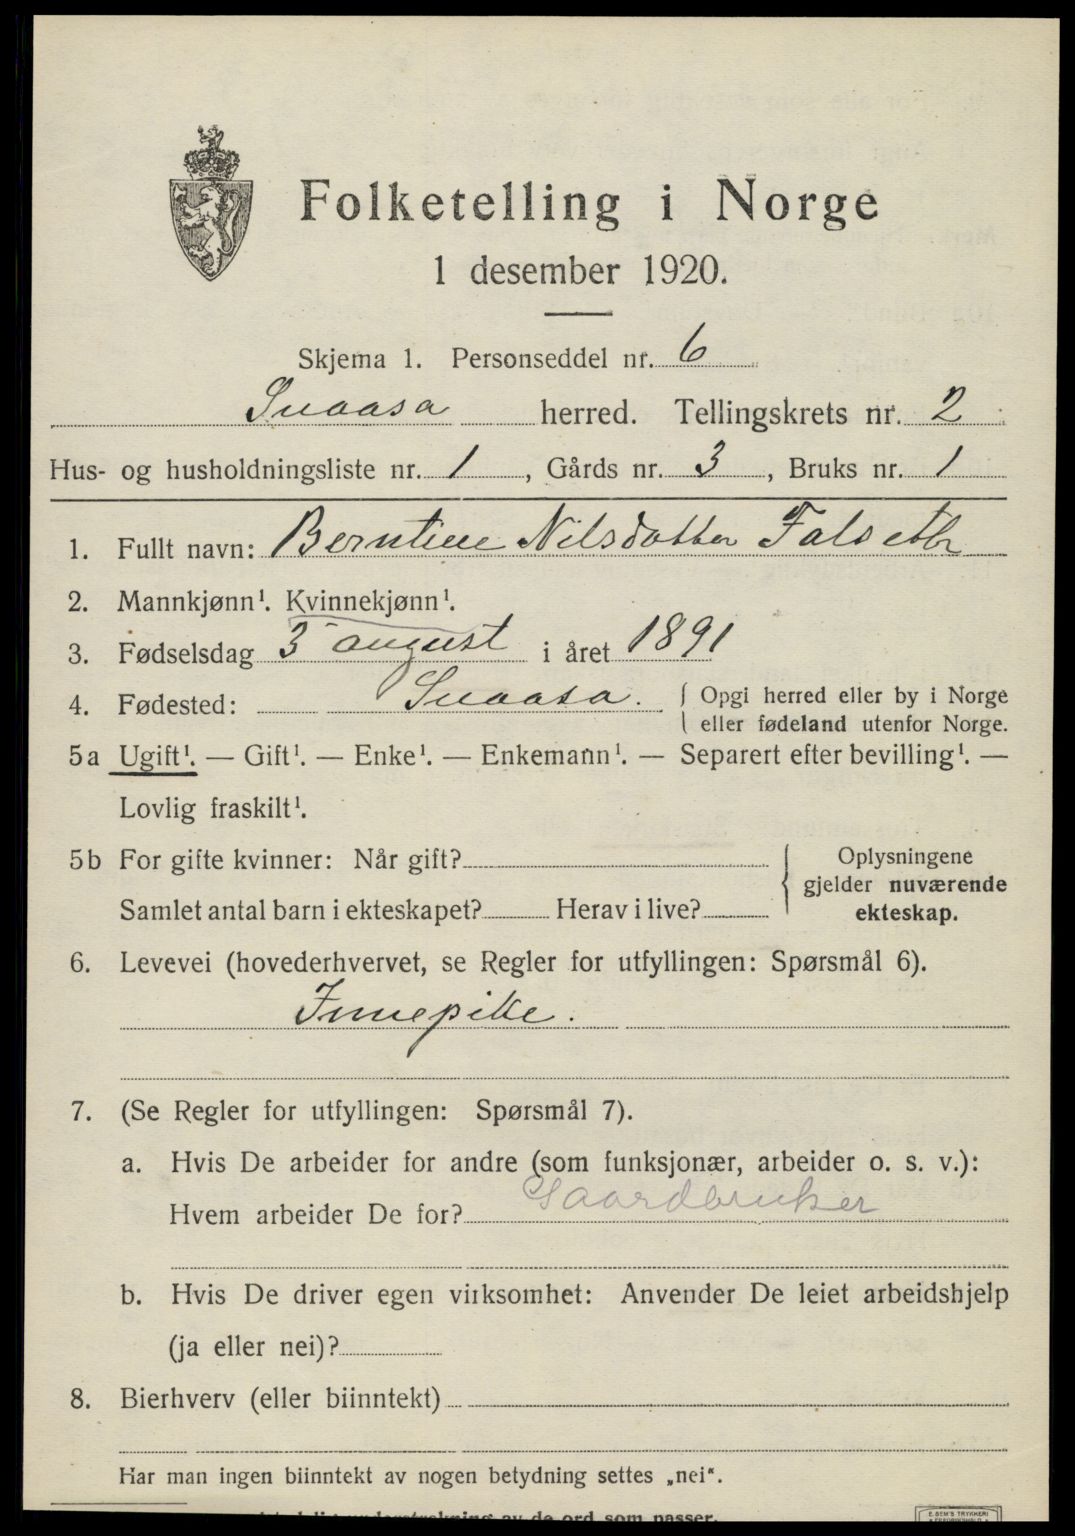 Folketelling i Norge
1 desember 1920.
Skjema 1. Personseddel nr. 6
Snaasa herred. Tellingskrets nr. 2
Hus- og husholdningsliste nr. 1, Gårds nr. 3, Bruks nr. 1
1. Fullt navn: Berntine Nilsdatter
2. Mannkjønn¹. Kvinnekjønn¹.
3. Fødselsdag 3 august i året 1891
4. Fødested: Snaasa. { Opgi herred eller by i Norge
eller fødeland utenfor Norge.
5a Ugift¹. — Gift¹. — Enke¹. — Enkemann¹. — Separert efter bevilling¹. —
Lovlig fraskilt¹.
5b For gifte kvinner: Når gift?
Samlet antal barn i ekteskapet? Herav i live?
Oplysningene
gjelder nuværende
ekteskap.
6. Levevei (hovederhvervet, se Regler for utfyllingen: Spørsmål 6).
Innepike.
7. (Se Regler for utfyllingen: Spørsmål 7).
a. Hvis De arbeider for andre (som funksjonær, arbeider o. s. v.):
Hvem arbeider De for? Gaardbruker
b. Hvis De driver egen virksomhet: Anvender De leiet arbeidshjelp
(ja eller nei)?
8. Bierhverv (eller biinntekt)
Har man ingen biinntekt av nogen betydning settes „nei“.
av de ord som passer.
E. SEM'S TRYKKERI
FREDRIKSHALD